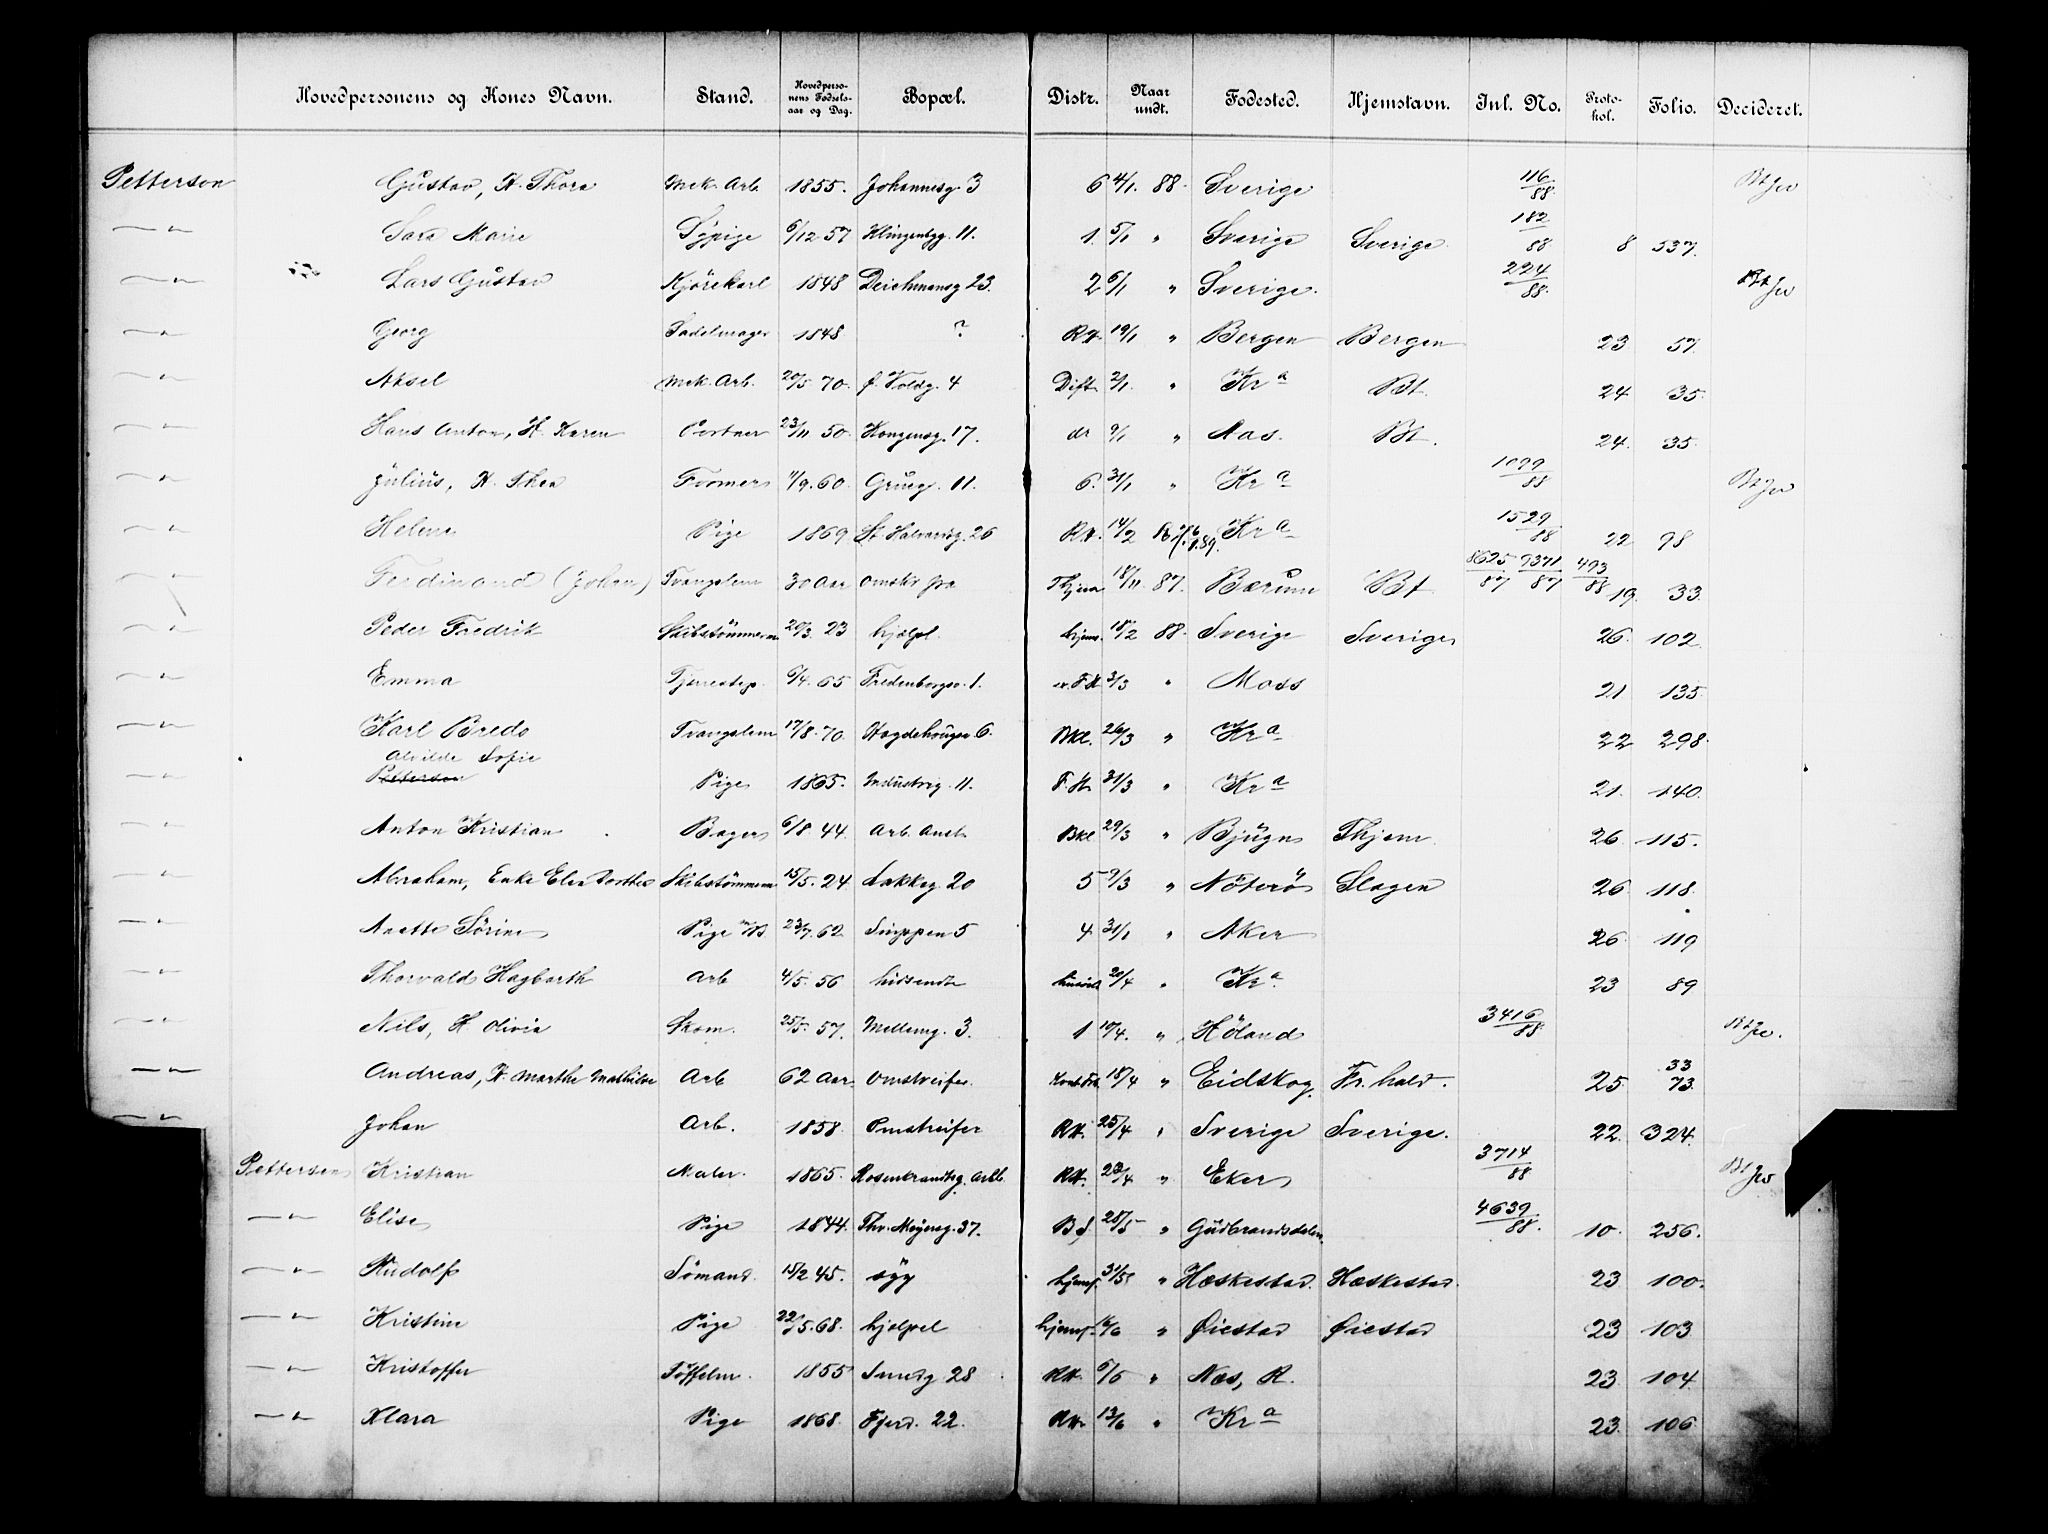 Hovedpersonens og Kones Navn. Stand. Hovedpersonens Fødselsaar og Dag. Bopæl. Distr. Naar undt. Fødested. Hjemstavn. Inl. No. Protokol. Folio. Decideret.
Petterson Gustav, H. Thora Mek. Arb. 1855. Johannesg. 3 6 4/1. 88. Sverige 116/88
—"— Sara Marie Sypige 6/12 57 Klingenbgg. 11. 1. 5/1 " Sverige Sverige 182/88 8 537.
—"— Lars Gustav Kjørekarl 1848 Deichmansg 23. 2 6/1 " Sverige. 224/88.
—"— Georg Sadelmager 1848 ? RH. 19/1 " Bergen Bergen 23 57.
—"— Aksel Mek. Arb. 20/5 70. f. Voldg. 4 Dift. 2/1 " Kra Bt. 24 35.
—"— Hans Anton, H. Karen Portner 23/11 50. Kongensg. 17. do 9/1 " Aas. Bt. 24. 35.
—"— Julius, H. Thea Former 11/9. 60. Grueg. 11. 6. 31/1 " Kra 1099/88
—"— Helene Pige 1869 St. Halvardsg. 26 RH. 14/2 Kra 1529/88 22 98
—"— Ferdinand (Johan) Tvangslem 30 Aar omstr fra Thjem 18/11. 87. Bærum Bt 8625/87 9371/87 493/88 19. 33.
—"— Peder Fredrik Skibstømmerm 20/3. 23 hjælpl. hjems. 18/2 88. Sverige Sverige 26. 102.
—"— Emma Tjenestep. 6/4. 65 Fredenborgv. 1. 3/3 " Moss 21 135
—"— Karl Bredo Tvangslem 17/8. 70. Hægdehougsv 6. Bkl. 26/3 " Kra 22 298.
Alvilde Sofie
—"— Petterson Pige 1865. Industrig. 11. F. H. 31/3 " Kra 21. 140.
—"— Anton Kristian Bager 6/8 44. Arb. Anst. Bkl 29/3 " Bjugn Thjem 26. 115.
—"— Abraham, Enke Elen Dorthea Skibstømmerm 15/5. 24. Lakkeg. 20 5 9/3 " Nøterø Slagen 26. 118.
—"— Anette Sørine Pige m/B. 23/7. 62 Smippen 5 4. 31/1 " Aker 26. 119
—"— Thorvald Hagbarth Arb 4/5. 56 hidsendte 20/4 " Kra. 23 89
—"— Nils, H. Olivia Skom. 25/5 57. Mellemg. 3. 1 10/4. " Høland 3416/88
—"— Andreas, H. Marthe Mathilde Arb 62 Aar. Omstreifer. 18/4 " Eidskog. Fr.hald. 25. 33 73.
—"— Johan Arb. 1858. Omstreifer RH. 25/4 " Sverige Sverige. 22. 324.
Pettersen Kristian Maler. 1865. Rosenkrantzg. Arbb. RH. 23/4 " Eker 3714/88
—"— Elise Pige 1844. Thv. Meyersg. 37. BS 28/5 " Gudbrandsdalen. 4639/88. 10. 256.
—"— Rudolf Sømand. 15/2 45. syg hjemf. 31/5 " Hæskestad. Hæskestad. 23 100.
—"— Kristine Pige 22/5. 68. hjælpel hjemf. 16/6 " Øiestad Øiestad 23 103
—"— Kristoffer Tøffelm. 1855 Smedg 28 RH. 6/6 " Næs, R. 23. 104.
—"— Klara Pige 1868. Fjerd. 22. RH. 13/6 " Kra 23. 106.